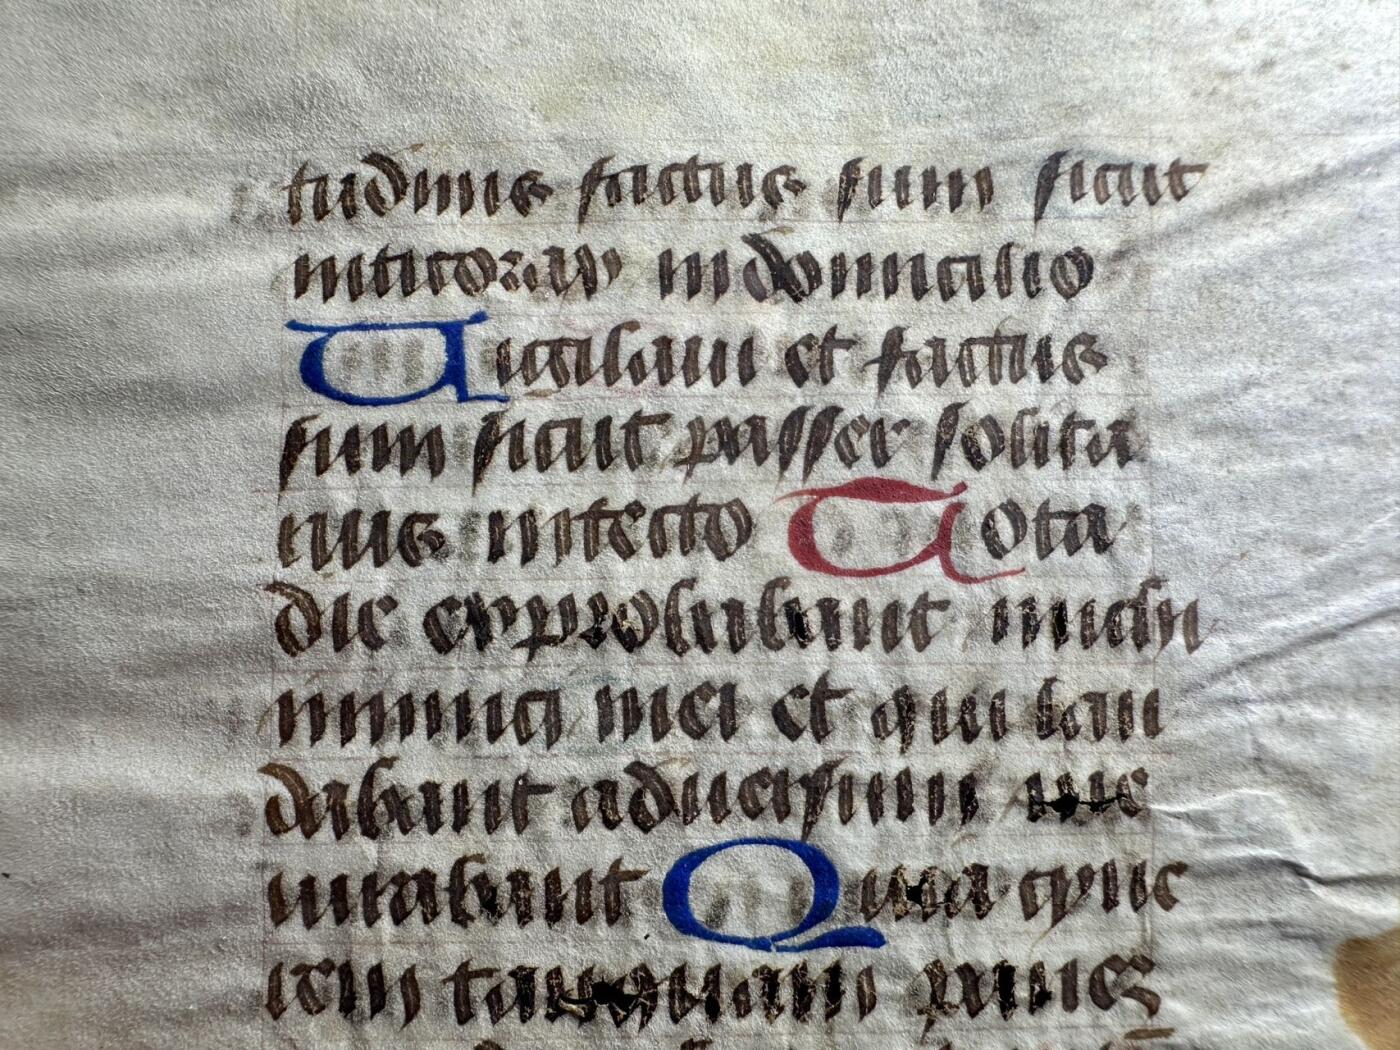 tudinis factus sum sicut
niticorax in domicilio
Uigilaui et factus
sum sicut passer solita
rius in tecto Tota
die exprobrabant michi
inimici mei et qui lau
dabant aduersum me
iurabant Quia cyne
rem tanquam panez